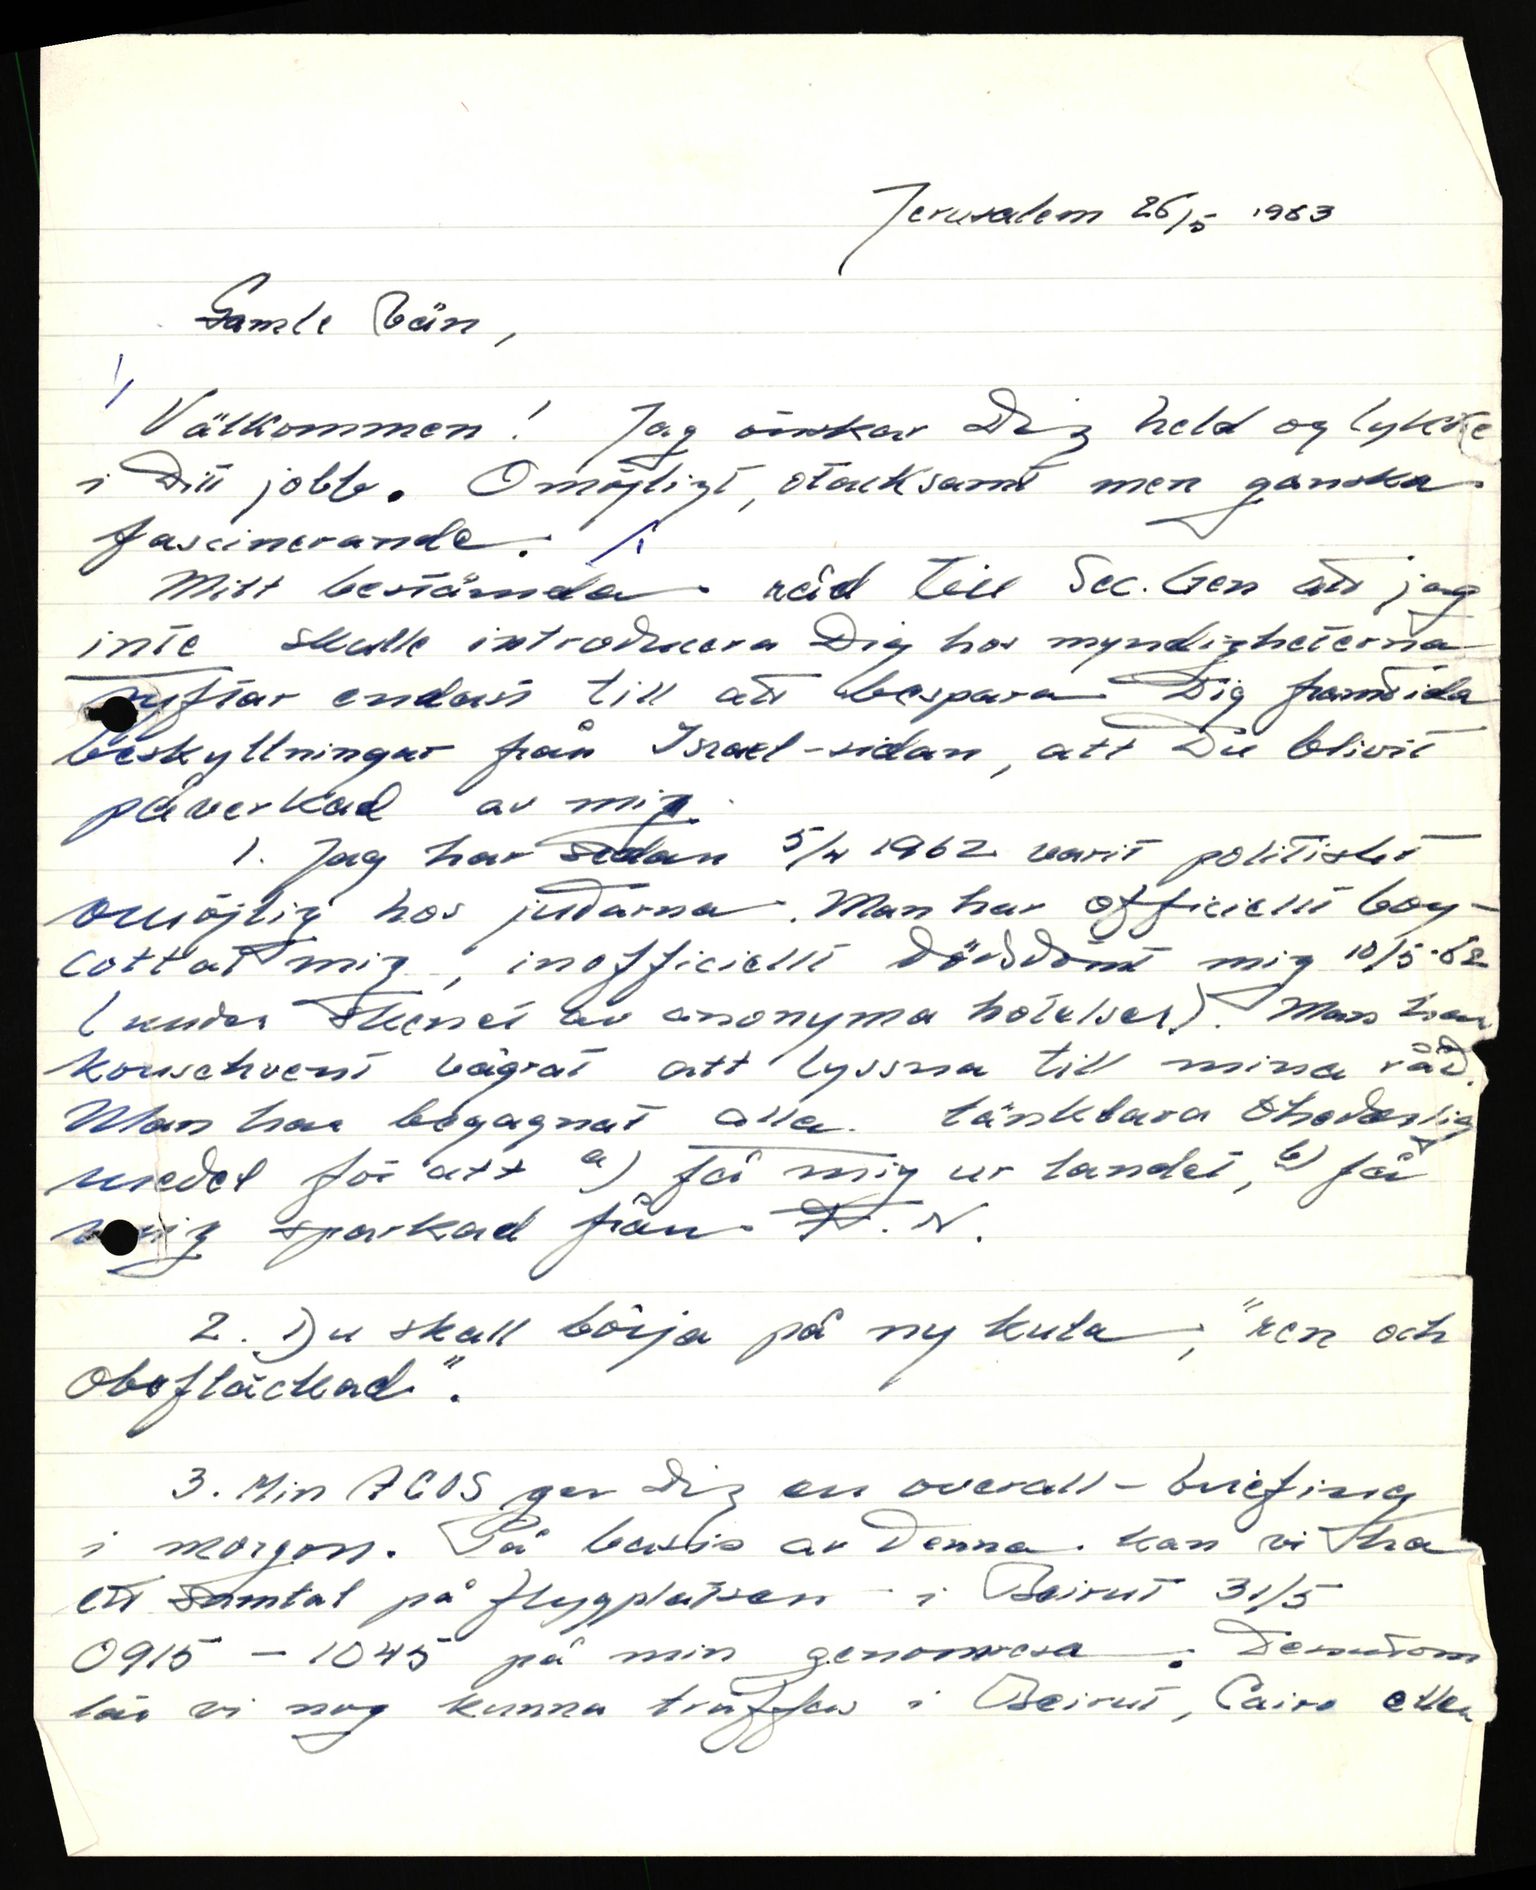 Jerusalem 26/5 1963
Gamle Vän,
Välkommen! Jag önskar Dig held og lykke
i Ditt jobb. Omöjligt, otacksamt men ganska
fascinerande.
Mitt bestämda råd till Sec. Gen att jag
inte skulle introducera Dig hos myndigheterna
syftar endast till att bespara Dig framtida
beskyllningar från Israel-sidan, att Du blivit
påverkad av mig.
1. Jag har sedan 5/4 1962 varit politiskt
omöjlig hos judarna. Man har officiellt boy-
cottat mig, inofficiellt dödsdömt mig 10/5-62
(under skenet av anonyma hotelser). Man har
konsekvent vägrat att lyssna till mina råd.
Man har begagnat alla tänkbara ohederlig
medel för att a) få mig ur landet, b) få
mig sparkad från F.N.
2. Du skall börja på ny kula, "ren och
obefläckad".
3. Min ACOS ger Dig en overall-briefing
i morgon. På basis av denna kan vi ha
ett samtal på flygplatsen i Beirut 31/5
0915 - 1045 på min genomresa. Dessutom
lär vi nog kunna träffas i Beirut, Cairo eller